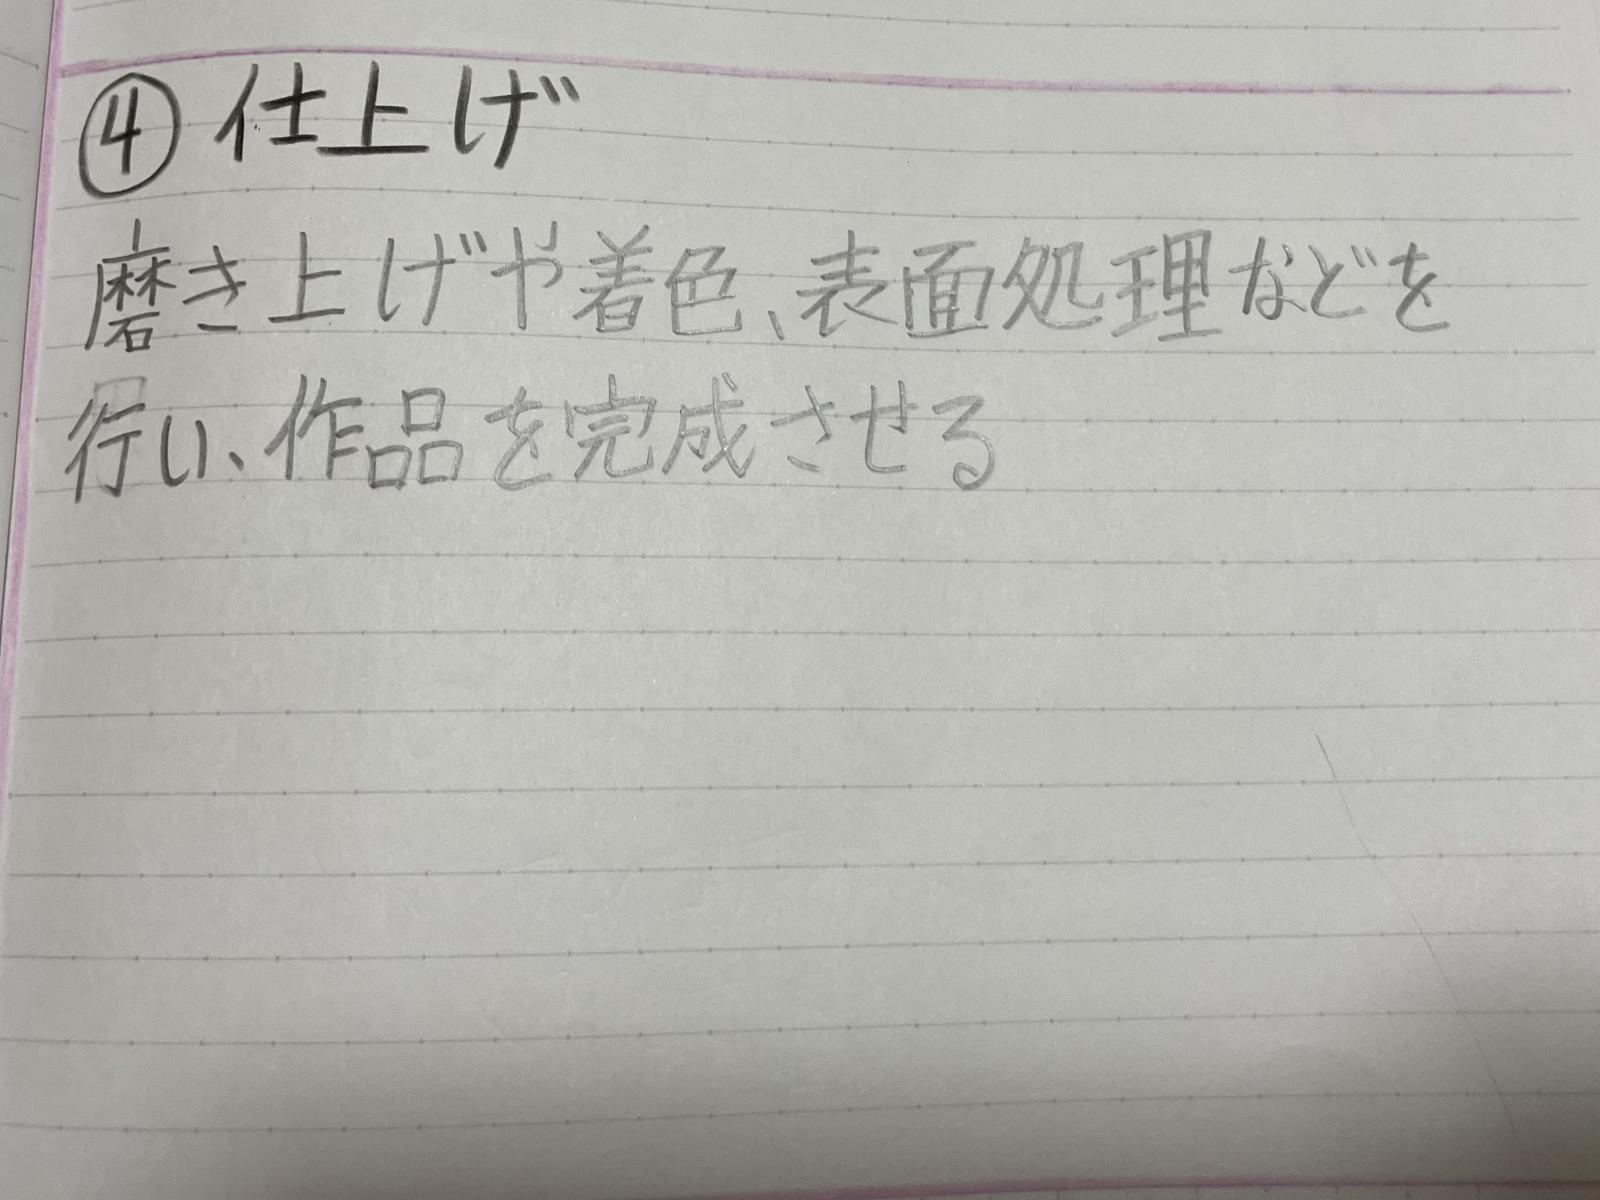 ④ 仕上げ
磨き上げや着色、表面処理などを
行い、作品を完成させる